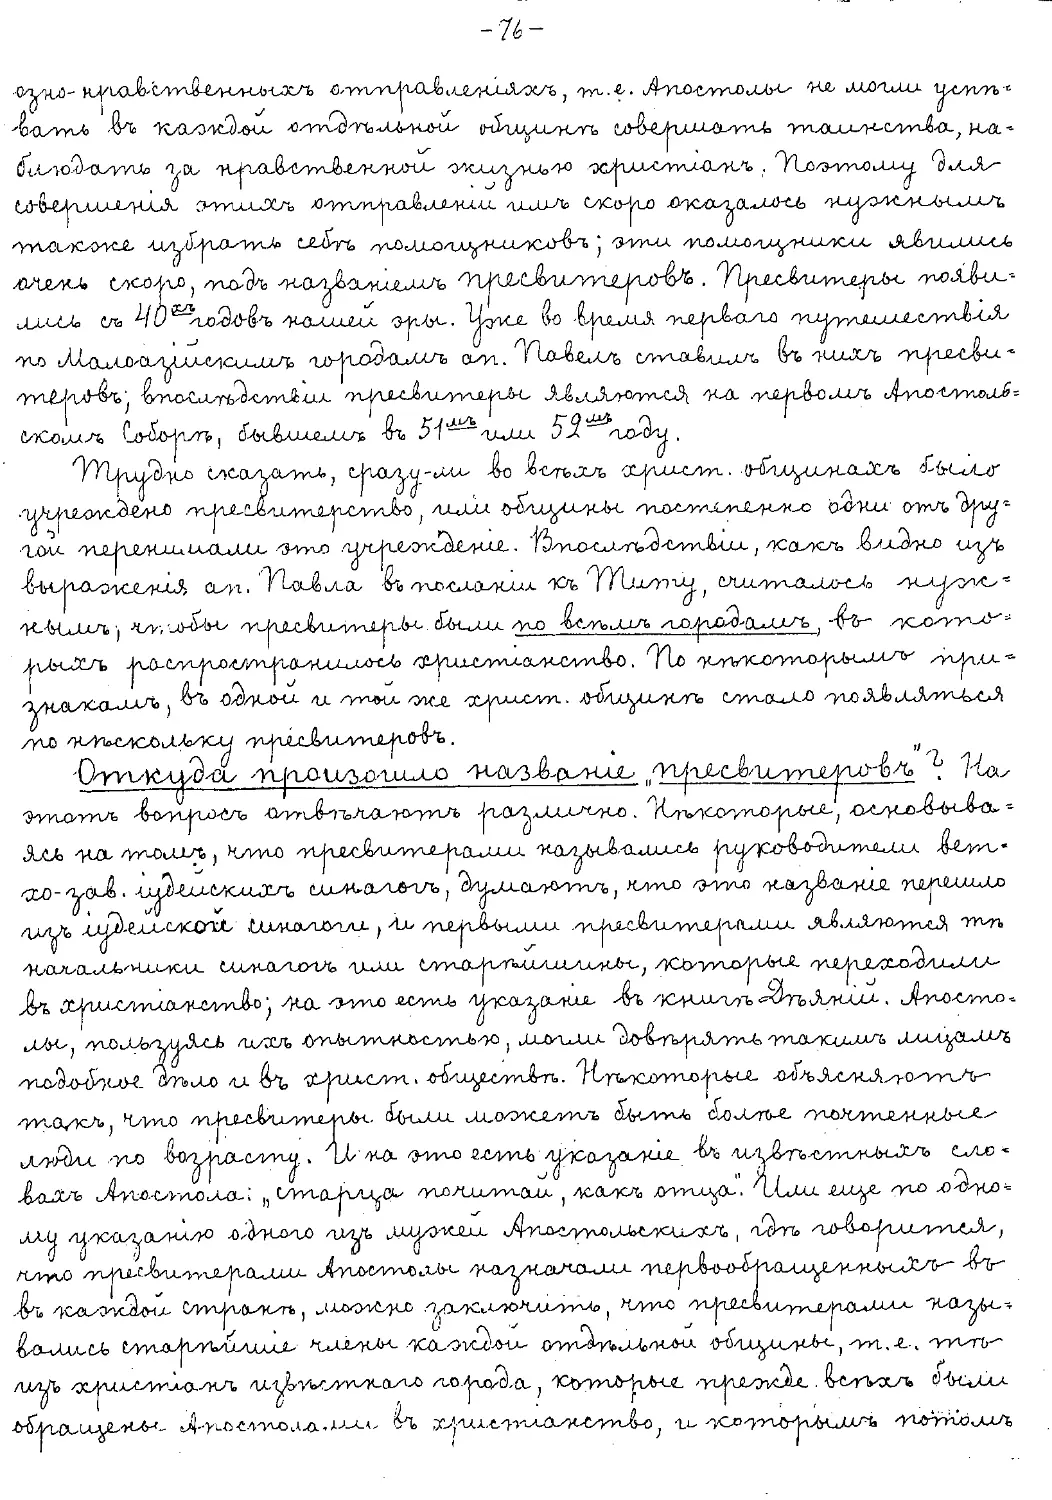 -76-
озно-нравственныхъ отправленіяхъ, т.е. Апостолы не могли успѣ=
вать въ каждой отдѣльной общинѣ совершать таинства, на=
блюдать за нравственной жизнью христіанъ. Поэтому для
совершенія этихъ отправленій имъ скоро оказалось нужнымъ
также избрать себѣ помощниковъ; эти помощники явились
очень скоро, подъ названіемъ пресвитеровъ. Пресвитеры появи=
лись съ 40хъ годовъ нашей эры. Уже во время перваго путешествія
по Малоазійскимъ городамъ ап. Павелъ ставилъ въ нихъ пресви=
теровъ; впослѣдствіи пресвитеры являются на первомъ Апостоль=
скомъ Соборѣ, бывшемъ въ 51мъ или 52мъ году.
Трудно сказать, сразу-ли во всѣхъ христ. общинахъ было
учреждено пресвитерство, или общины постепенно одни отъ дру=
гой перенимали это учрежденіе. Впослѣдствіи, какъ видно изъ
выраженія ап. Павла въ посланіи къ Титу, считалось нуж=
нымъ, чтобы пресвитеры были по всѣмъ городамъ, въ кото=
рыхъ распространилось христіанство. По нѣкоторымъ при=
знакамъ, въ одной и той же христ. общинѣ стало появляться
по нѣскольку пресвитеровъ.
Откуда произошло названіе „пресвитеровъ"? На
этотъ вопросъ отвѣчаютъ различно. Нѣкоторые, основыва=
ясь на томъ, что пресвитерами назывались руководители вет=
хо-зав. іудейскихъ синагогъ, думаютъ, что это названіе перешло
изъ іудейской синагоги, и первыми пресвитерами являются тѣ
начальники синагогъ или старѣйшины, которые переходили
въ христіанство; на это есть указаніе въ книгѣ Дѣяній. Апосто=
лы, пользуясь ихъ опытностью, могли довѣрять такимъ лицамъ
подобное дѣло и въ христ. обществѣ. Нѣкоторые объясняютъ
такъ, что пресвитеры были можетъ быть болѣе почтенные
люди по возрасту. И на это есть указаніе въ извѣстныхъ сло=
вахъ Апостола: „старца почитай, какъ отца". Или еще по одно=
му указанію одного изъ мужей Апостольскихъ, гдѣ говорится,
что пресвитерами Апостолы назначали первообращенныхъ въ
въ каждой странѣ, можно заключить, что пресвитерами назы=
вались старѣйшіе члены каждой отдѣльной общины, т.е. тѣ
изъ христіанъ извѣстнаго города, которые прежде всѣхъ были
обращены Апостолами въ христіанство, и которымъ потомъ